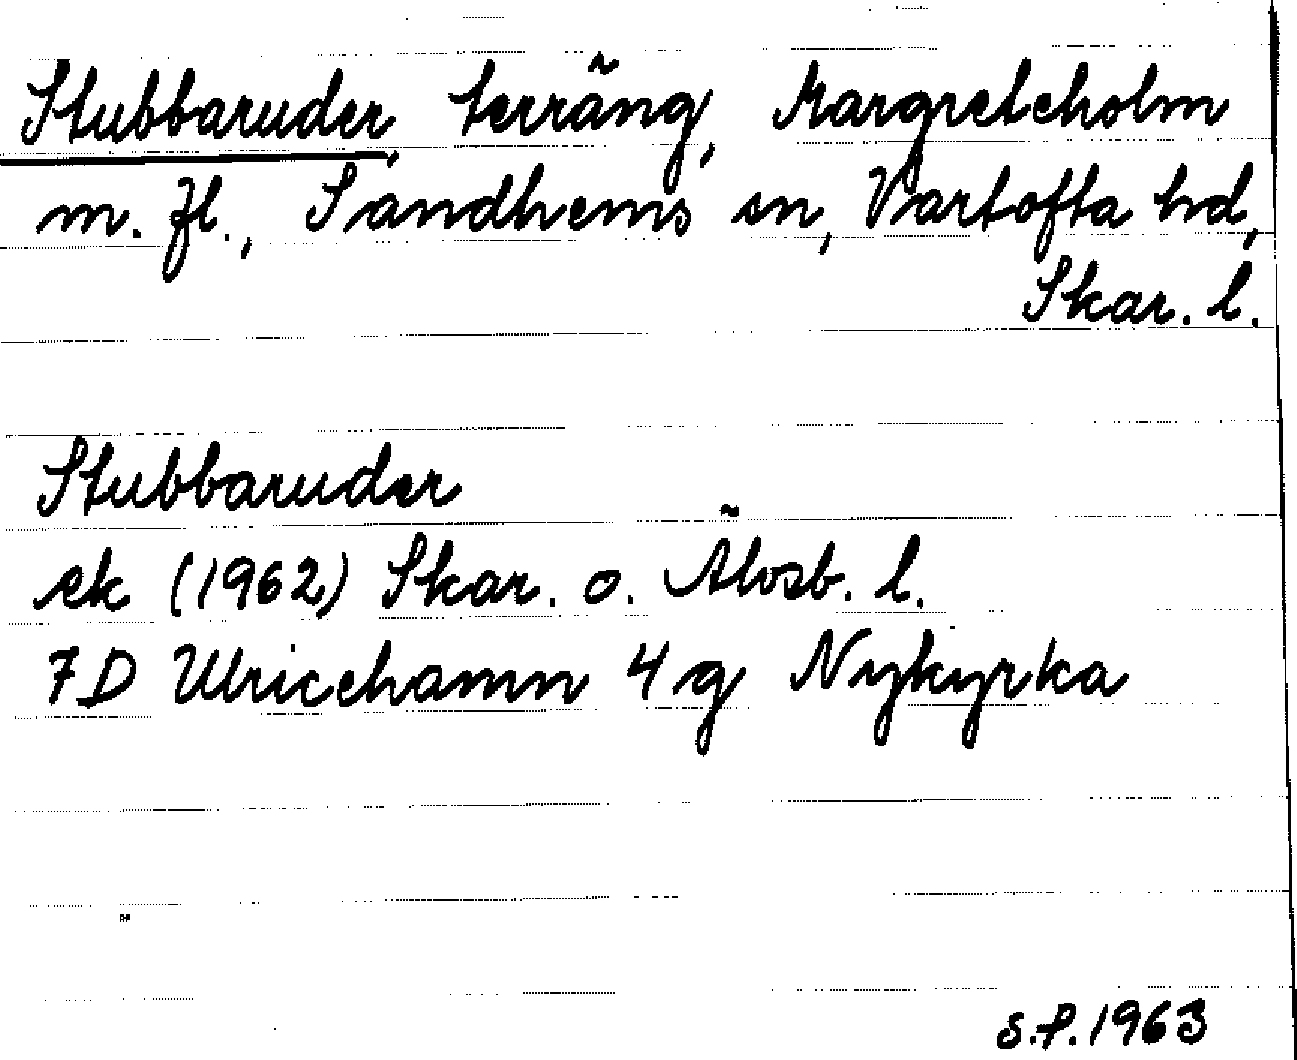 Stubbaruder, terräng, Margreteholm
m. fl., Sandhems sn, Vartofta hd,
Skar. l.
Stubbaruder
ek (1962) Skar. o. Älvsb. l.
7D Ulricehamn 4g Nykyrka
S.P. 1963